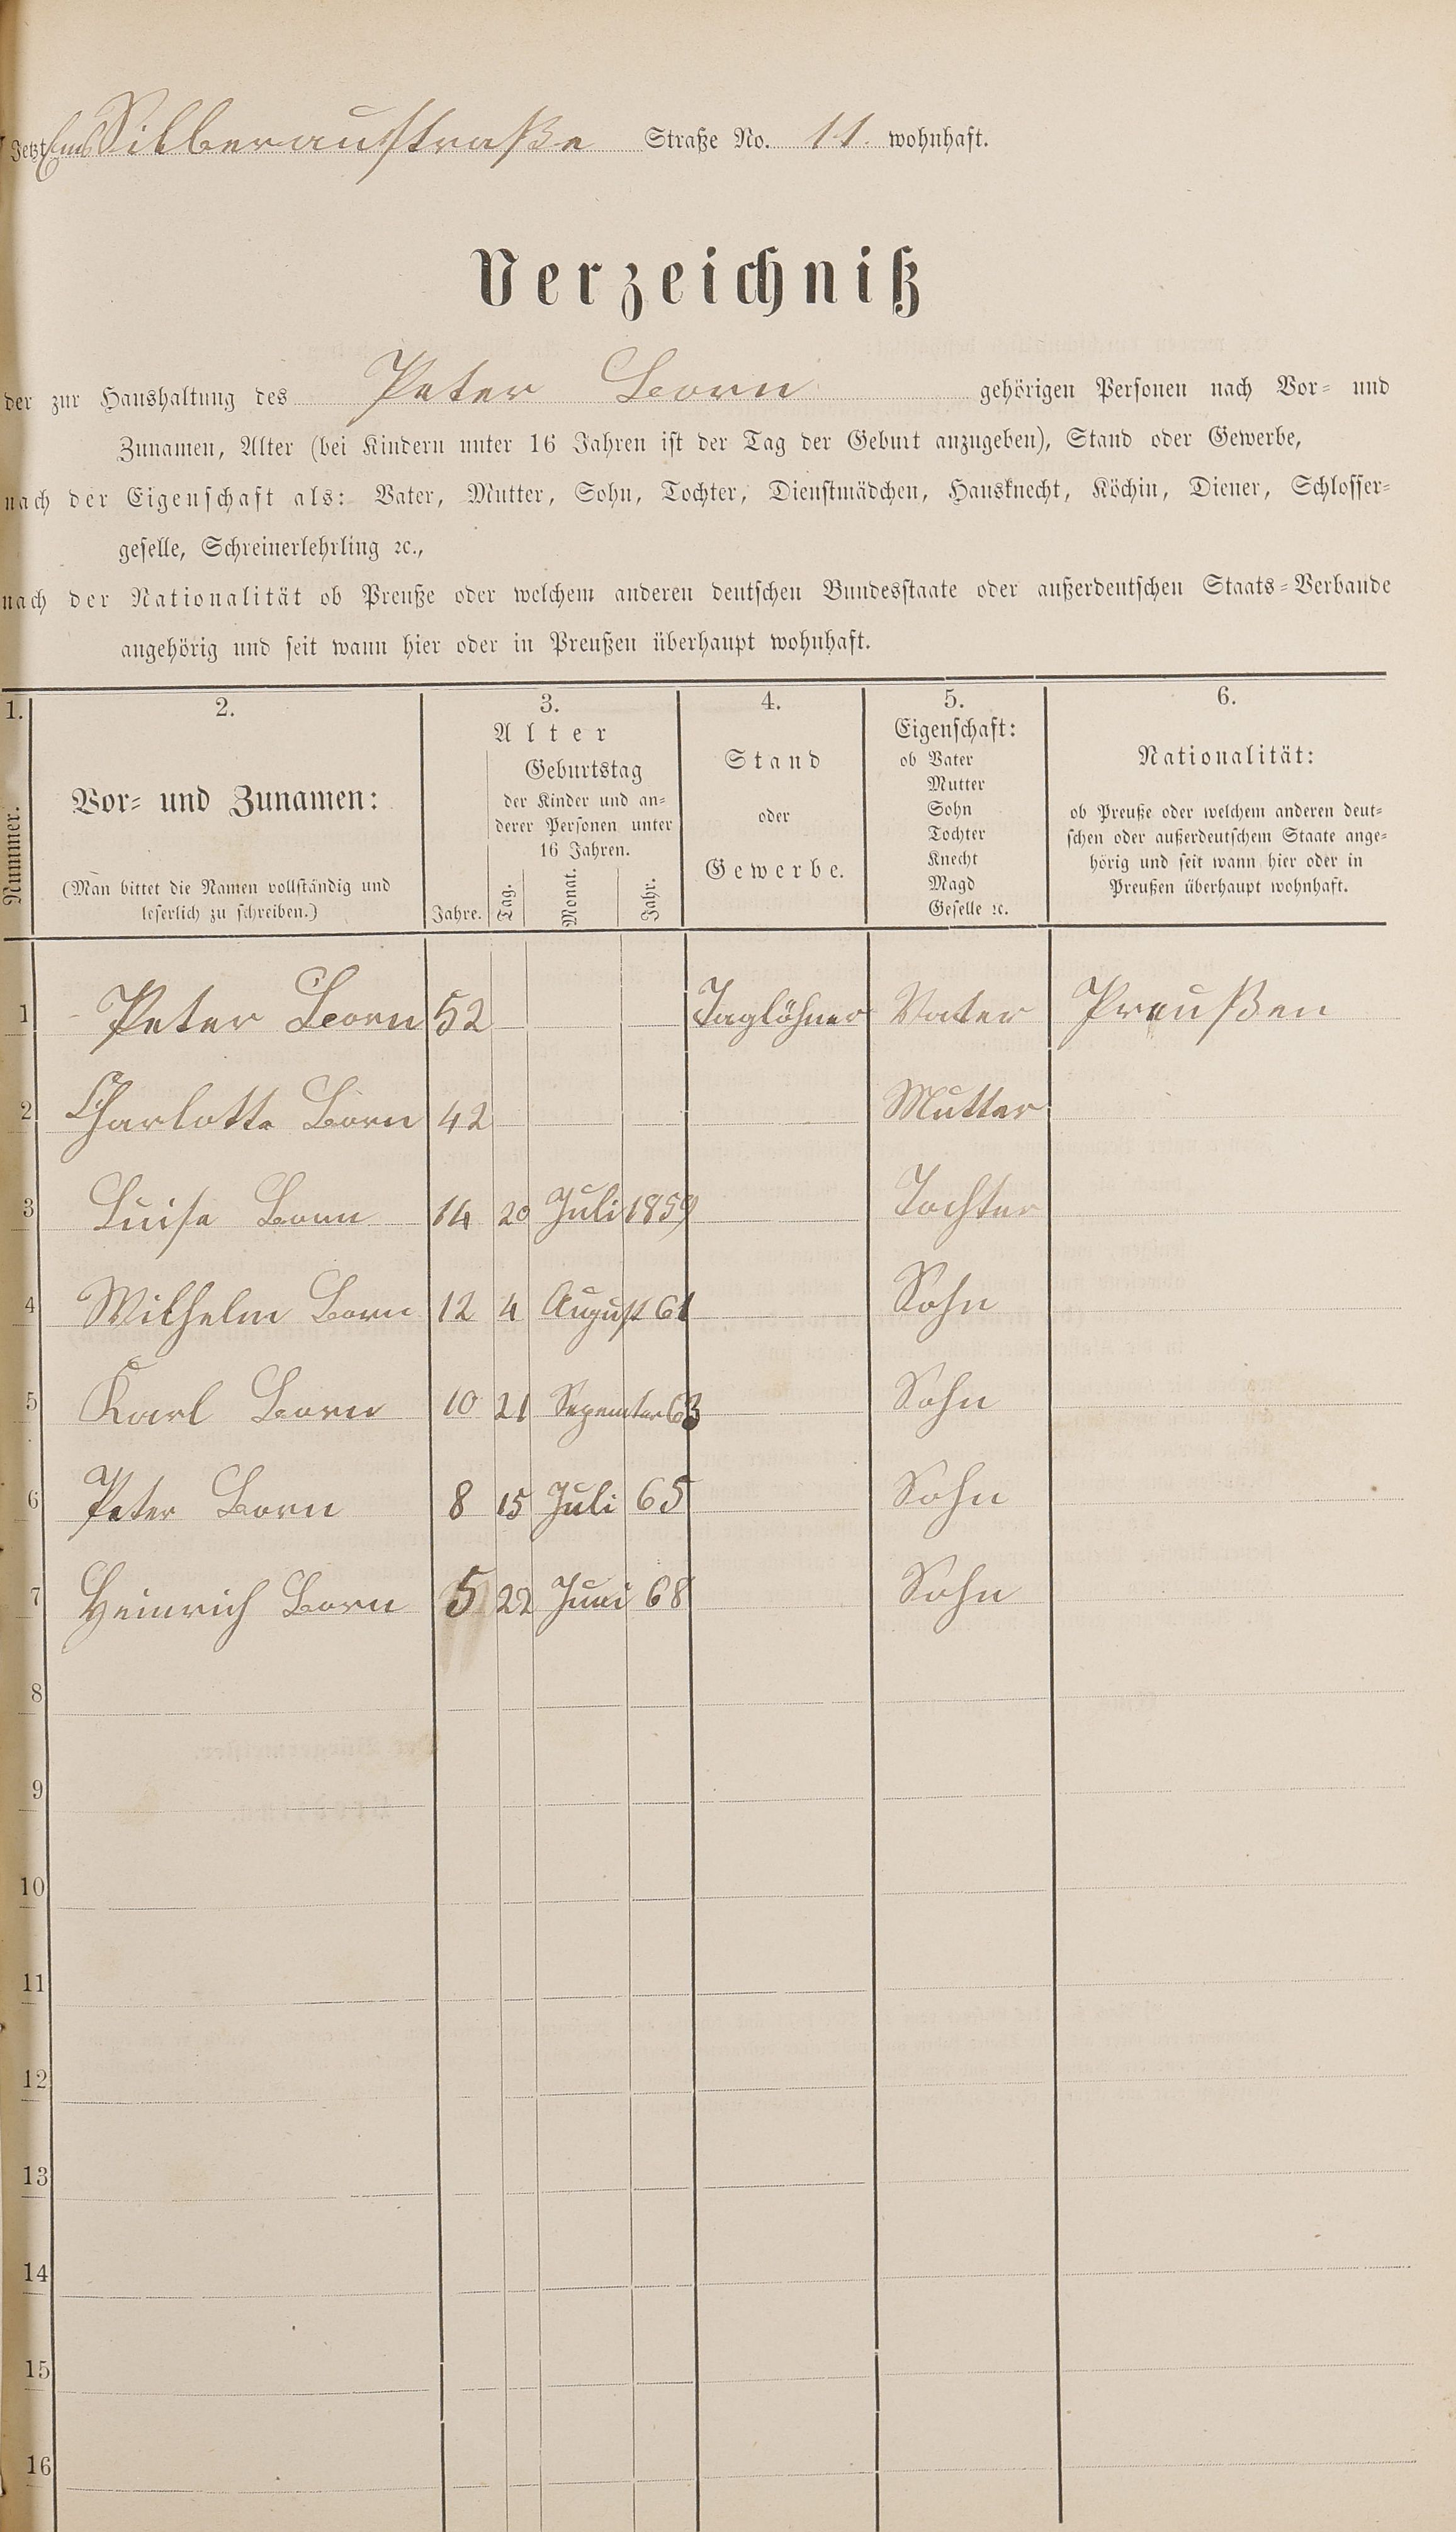 Jetzt Ems Silberaustraße Straße No. 11. wohnhaft.
Verzeichniß
der zur Haushaltung des Peter Born gehörigen Personen nach Vor- und
Zunamen, Alter (bei Kindern unter 16 Jahren ist der Tag der Geburt anzugeben), Stand oder Gewerbe,
nach der Eigenschaft als: Vater, Mutter, Sohn, Tochter, Dienstmädchen, Hausknecht, Köchin, Diener, Schlosser-
geselle, Schreinerlehrling ꝛc.,
nach der Nationalität ob Preuße oder welchem anderen deutschen Bundesstaate oder außerdeutschen Staats-Verbande
angehörig und seit wann hier oder in Preußen überhaupt wohnhaft.
1. 2. 3. 4. 5. 6.
Nummer.
Vor- und Zunamen:
(Man bittet die Namen vollständig und
leserlich zu schreiben.)
Alter
Geburtstag
der Kinder und an-
derer Personen unter
16 Jahren.
Jahre. Tag. Monat. Jahr.
Stand
oder
Gewerbe.
Eigenschaft:
ob Vater
Mutter
Sohn
Tochter
Knecht
Magd
Geselle ꝛc.
Nationalität:
ob Preuße oder welchem anderen deut-
schen oder außerdeutschem Staate ange-
hörig und seit wann hier oder in
Preußen überhaupt wohnhaft.
1 Peter Born 52 Taglöhner Vater Preußen
2 Charlotte Born 42 Mutter
3 Luise Born 14 20 Juli 1859 Tochter
4 Wilhelm Born 12 4 August 61 Sohn
5 Karl Born 10 21 Sepember 63 Sohn
6 Peter Born 8 15 Juli 65 Sohn
7 Heinrich Born 5 22 Juni 68 Sohn
8
9
10
11
12
13
14
15
16